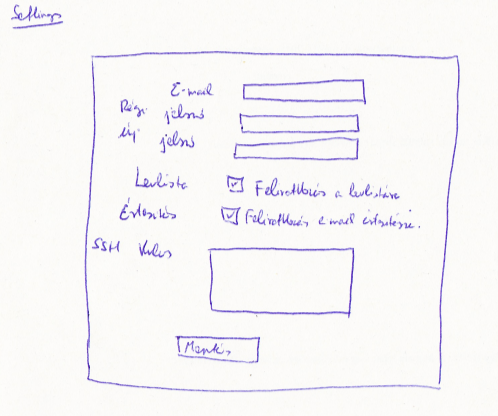 Settings
E-mail
Régi jelszó
új jelszó
Levlista Feliratkozás a levlistára
Értesítés Feliratkozás e-mail értesítésre.
SSH Kulcs
Mentés